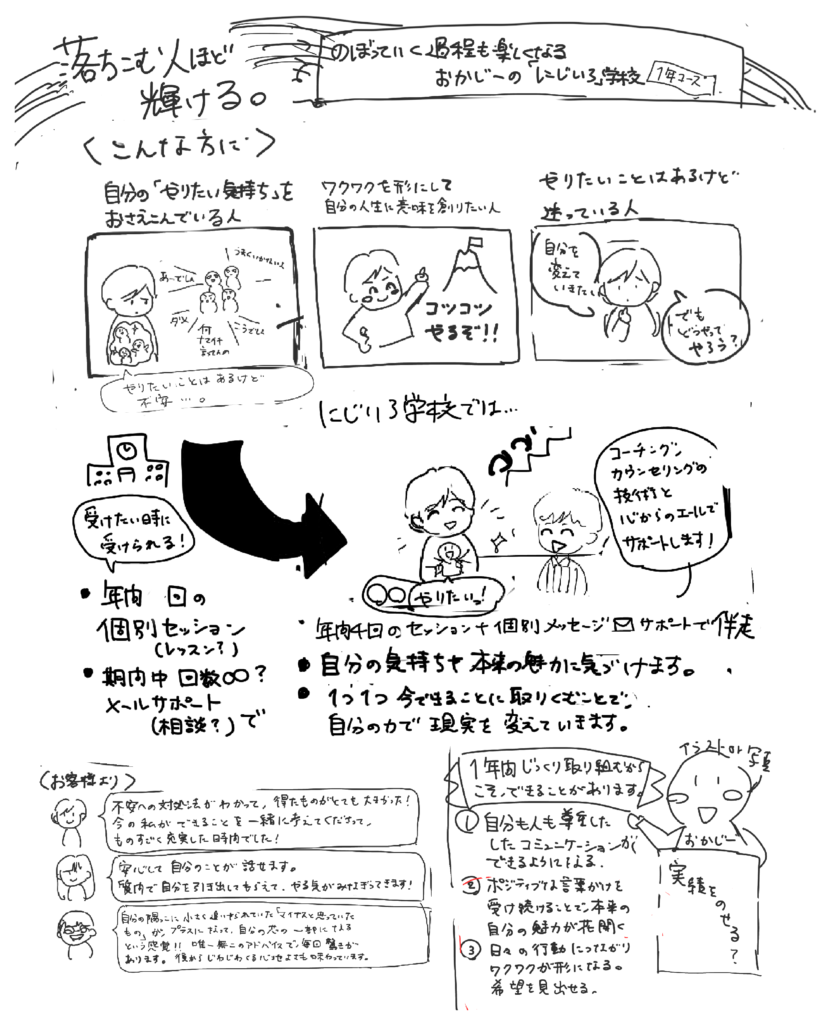 落ちこむ人ほど
輝ける。
のぼっていく過程も楽しくなる
おかじーの「にじいろ」学校
1年コース
〈こんな方に〉
自分の「やりたい気持ち」を
おさえこんでいる人
うまくいかないよ
あーでしょ
ダメ
何
ナマイキ
言ってんの
こうでしょ
やりたいことはあるけど
不安…。
ワクワクを形にして
自分の人生に意味を創りたい人
コツコツ
やるぞ!!
やりたいことはあるけど
迷っている人
自分を
変えて
いきたい
でも
どうやって
やろう?
にじいろ学校では…
受けたい時に
受けられる!
コツコツ
コーチング
カウンセリングの
技術と
心からのエールで
サポートします!
〇〇やりたいっ!
・年内 回の
個別セッション
(レッスン?)
・期内中 回数∞?
メールサポート
(相談?)で
・年内4回のセッション+個別メッセージサポートで伴走
・自分の気持ちや本来の魅力に気づけます。
・1つ1つ今できることに取りくむことで、
自分の力で現実を変えていきます。
〈お客様より〉
不安への対処法がわかって、得たものがとても大きかった!
今の私ができることを一緒に考えてくださって、
ものすごく充実した時間でした!
安心して自分のことが話せます。
質内で自分を引き出してもらえて、やる気がみなぎってきます!
自分の隅っこに小さく追いやられていた「マイナスと思っていた
もの」が、プラスになって、自分の芯の一部になる
という感覚!! 唯一無二のアドバイスで毎回驚きが
あります。後からじわじわくる心地よさも味わっています。
1年内じっくり取り組むから
こそ、できることがあります。
① 自分も人も尊重した
したコミュニケーションが
できるようになる.
② ポジティブな言葉かけを
受け続けることで、本来の
自分の魅力が花開く
③ 日々の行動につながり
ワクワクが形になる。
希望を見出せる.
イラストor写真
おかじー
実績を
のせる?